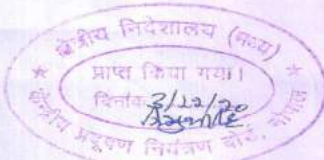 क्षेत्रीय निदेशालय (मध्य)
प्राप्त किया गया।
दिनांक 3/12/20
केन्द्रीय प्रदूषण नियंत्रण बोर्ड, भोपाल